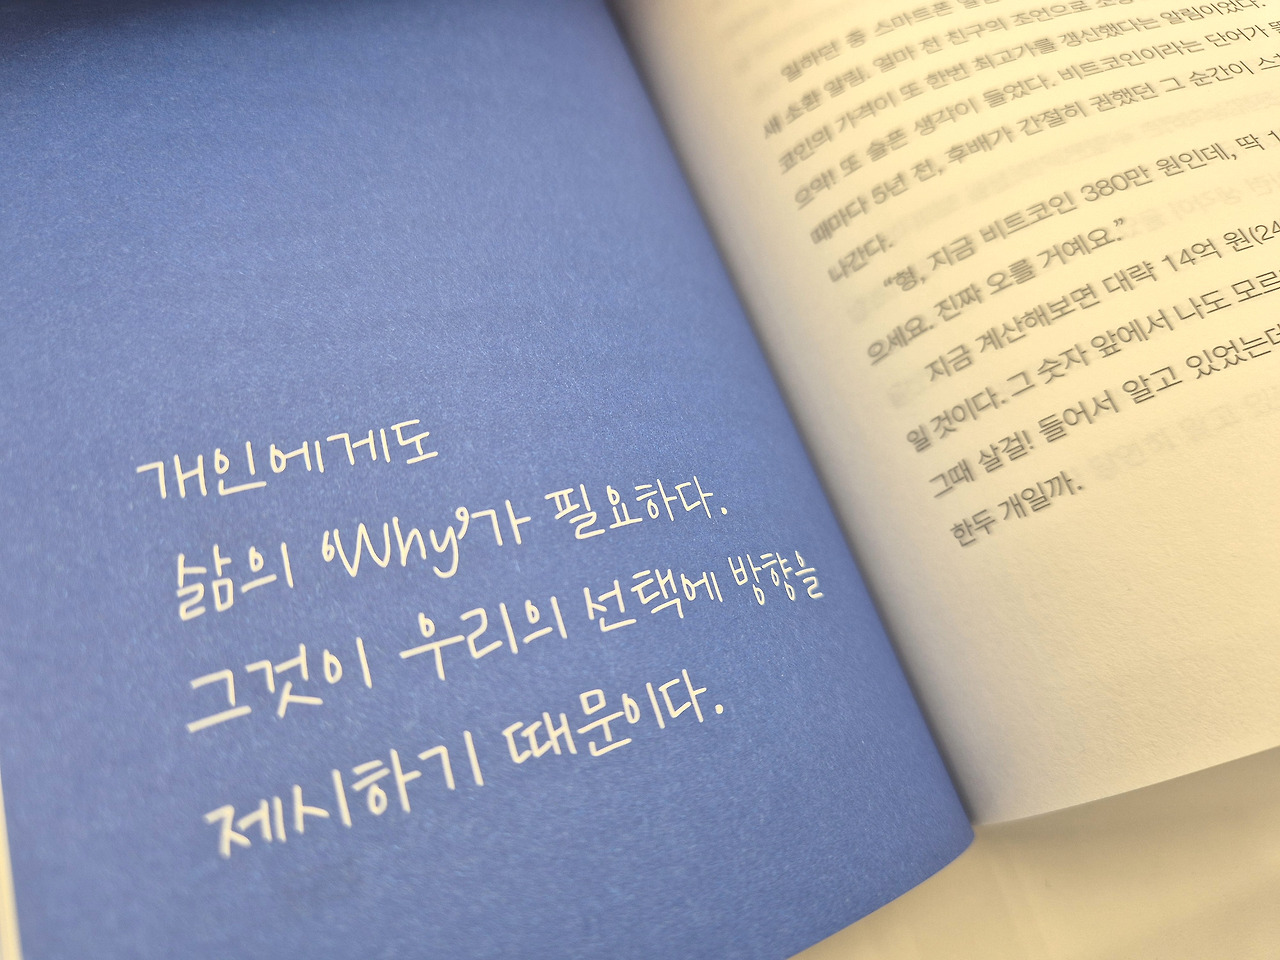 개인에게도
삶의 'Why'가 필요하다.
그것이 우리의 선택에 방향을
제시하기 때문이다.
일하던 중 스마트폰
새 소환 알림. 얼마 전 친구의 조언으로
코인의 가격이 또 한번 최고가를 갱신했다는 알림이었다.
으악! 또 슬픈 생각이 들었다. 비트코인이라는 단어가
때마다 5년 전, 후배가 간절히 권했던 그 순간이
나간다.
"형, 지금 비트코인 380만 원인데, 딱
으세요. 진짜 오를 거예요."
지금 계산해보면 대략 14억 원(24
일 것이다. 그 숫자 앞에서 나도 모르
그때 살걸! 들어서 알고 있었는데
한두 개일까.